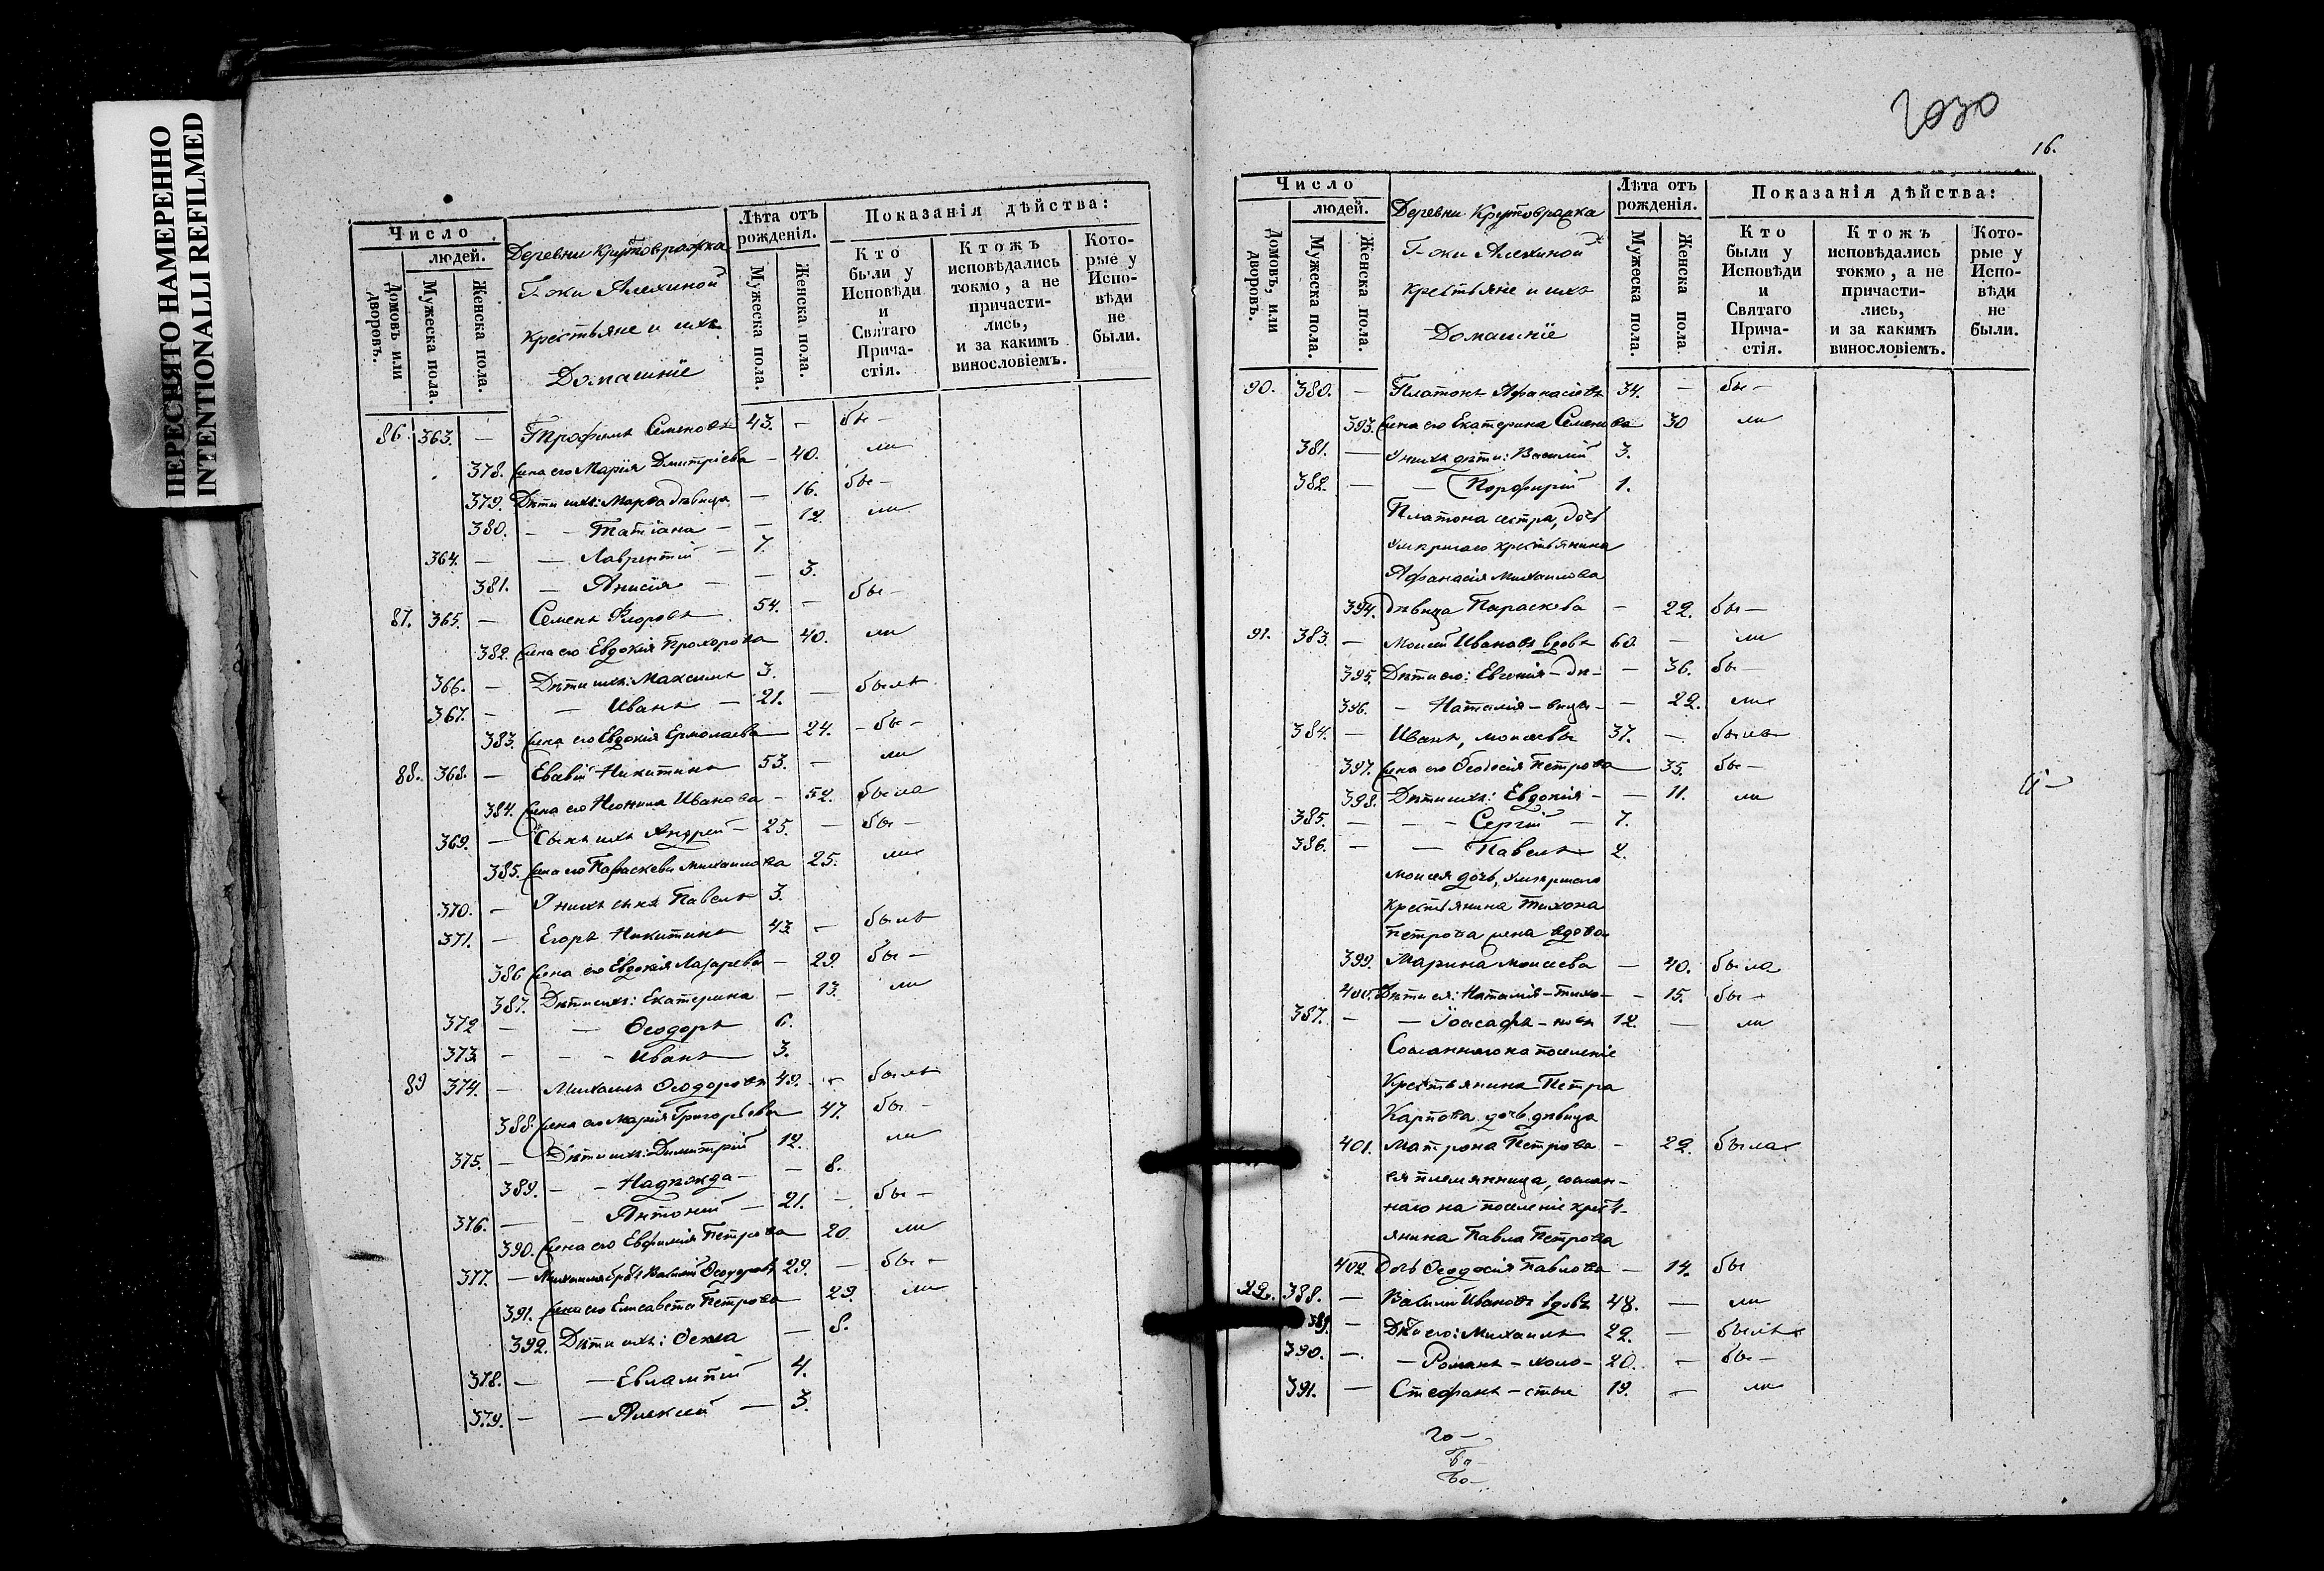 ПЕРЕСНЯТО НАМЕРЕННО
INTENTIONALLI REFILMED
Число
людей.
Домовъ или дворовъ.
Мужеска пола.
Женска пола.
Деревни Крутовражка
Г-жи Алехиной
крестьяне и ихъ
Домашніе
Лѣта отъ рожденія.
Мужеска пола.
Женска пола.
Показанія дѣйства:
Кто были у Исповѣди и Святаго Прича- стія.
Ктожъ исповѣдались токмо, а не причасти- лись, и за какимъ винословіемъ.
Кото- рые у Испо- вѣди не были.
86. 363. — Трофимъ Семеновъ 43. — бы —
378. жена его Марія Дмитріева — 40. ли
379. Дѣти ихъ: Марѳа дѣвица — 16. бы —
380. — — Татіана — — 12. ли
364. — — Лаврентій — 7.
381. — Анисія — — 3.
87. 365. — Семенъ Флоровъ 54. — бы —
382. жена его Евдокія Прохорова 40. ли
366. — Дѣти ихъ: Максимъ 3.
367. — — Иванъ — 21. — былъ
383. жена его Евдокія Ермолаева 24. — бы —
88. 368. — Евсѣвій Никитинъ 53. — ли
384. жена его Неонила Иванова — 52. была
369. — Сынъ ихъ Андрей — 25. — бы —
385. жена его Параскева Михаилова 25. ли
370. — У нихъ сынъ Павелъ 3.
371. — Егоръ Никитинъ 43 — былъ
386 жена его Евдокія Лазарева — 29. бы —
387. Дѣти ихъ: Екатерина — 13. ли
372 — — Ѳеодоръ 6.
373 — — — Иванъ 3.
89 374. — Михаилъ Ѳеодоровъ 49. — былъ
388. жена его Марія Григорьева 47. бы —
375. — Дѣти ихъ: Димитрій 12. ли
389. — — Надежда — — 8.
376. — — Антоній — 21. — бы —
390. жена его Евфимія Петрова 20 ли
377. — Михаила братъ Василій Ѳеодоровъ 29. — бы —
391. жена его Елисавета Петрова 29. ли
392. Дѣти ихъ: Ѳекла — 8.
378. — — Евлампій 4.
379. — — Алексѣй — 3.
16.
Число
людей.
Домовъ, или дворовъ.
Мужеска пола.
Женска пола.
Деревни Крутовражка
Г-жи Алехиной
крестьяне и ихъ
Домашніе
Лѣта отъ рожденія.
Мужеска пола.
Женска пола
Показанія дѣйства:
Кто были у Исповѣди и Святаго Прича- стія.
Ктожъ исповѣдались токмо, а не причасти- лись, и за какимъ винословіемъ.
Кото- рые у Испо- вѣди не были.
90. 380. — Платонъ Афанасіевъ 34. — бы —
393. жена его Екатерина Семенова 30 ли
381. — У нихъ дѣти: Василій 3.
382. — — Порфирій 1.
Платона сестра, дочь
умершаго крестьянина
Афанасія Михаилова
394. дѣвица Параскева — 22. бы —
91. 383. — Моисей Ивановъ вдовъ 60. — ли
395. Дѣти его: Евгенія — дѣ — — 36. бы —
396. — Наталія — вицы — — 22. ли
384. — Иванъ, Моисеевы 37. — былъ
397. жена его Ѳеодосія Петрова 35. бы —
398. Дѣти ихъ: Евдокія — — 11. ли
385. — — — Сергій — 7.
386. — — Павелъ 2.
Моисея дочь, умершаго
крестьянина Тихона
Петрова жена вдова
399. Марина Моисеева — 40. была
400. Дѣти ея: Наталія — Тихо — — 15. бы —
387. — — Іоасафъ — новы 12. — ли
Сосланнаго на поселеніе
Крестьянина Петра
Карпова дочь дѣвица
401. Матрона Петрова — 22. была
ея племянница, сослан-
наго на поселеніе крест-
янина Павла Петрова
402. Дочь Ѳеодосія Павлова — 14. бы
92. 388. — Василій Ивановъ вдовъ 48. — ли
389. — Дѣти его: Михаилъ 22. — былъ
390. — — Романъ — холо — 20. — бы —
391. — Стефанъ — стые 19. — ли